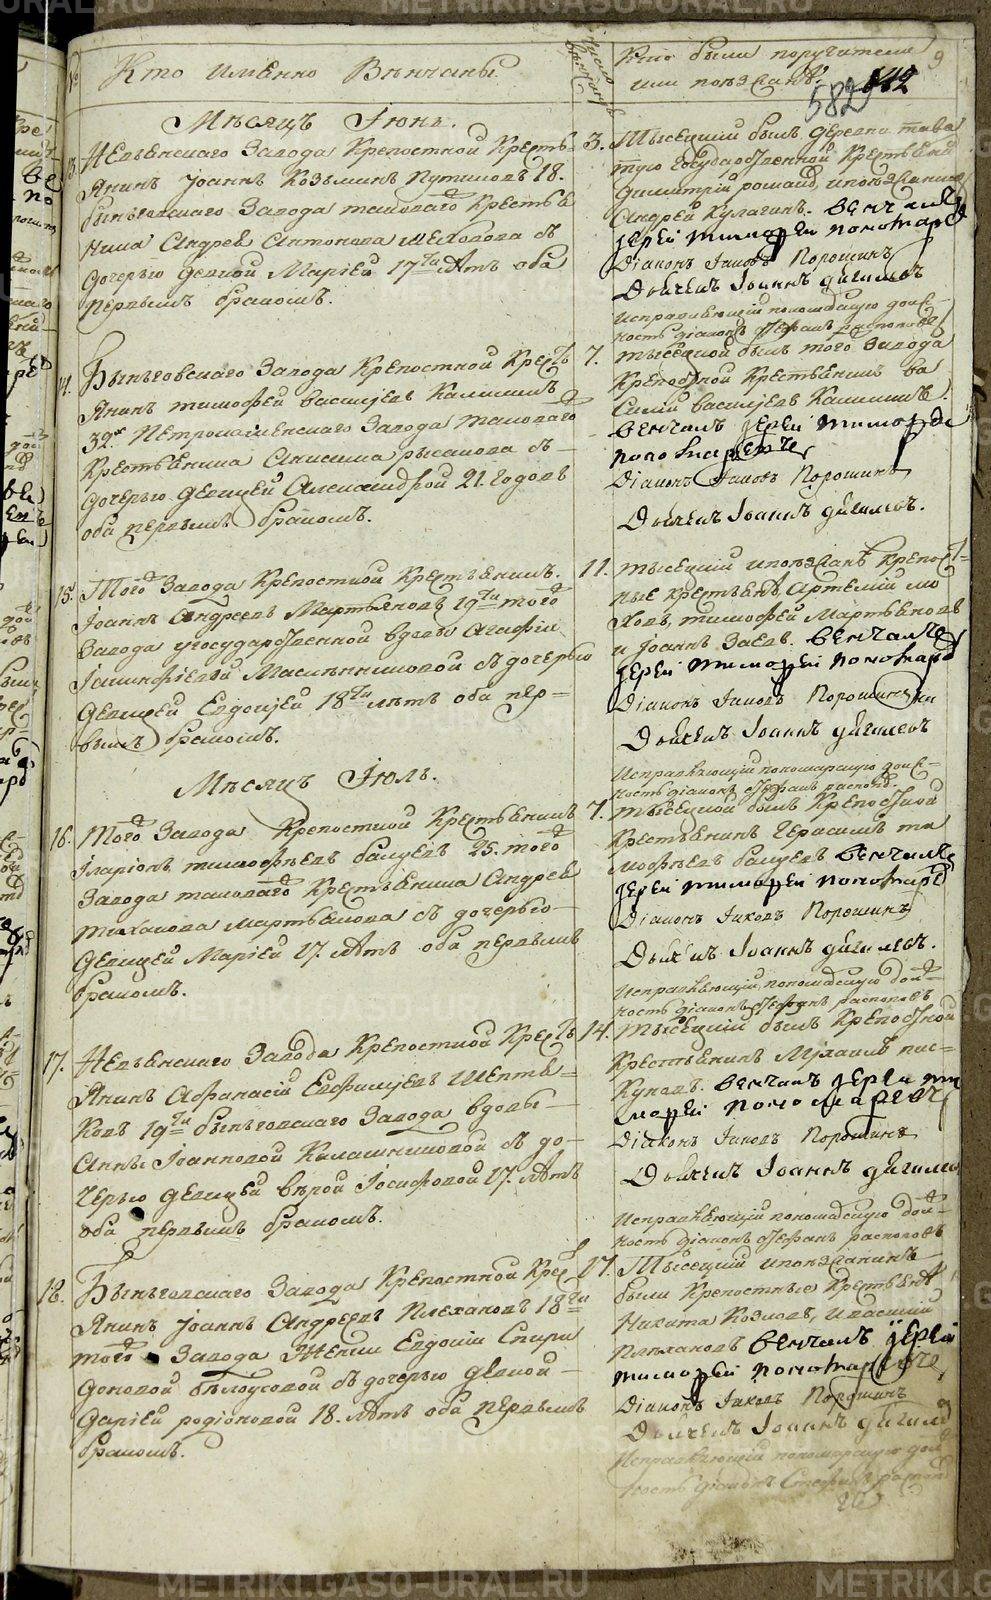 №
Кто именно Вѣнчаны
число вѣнчанія
Кто были поручители
или поѣзжанѣ.
9
582
Мѣсяцъ Іюнь.
13. Невьянскаго Завода Крепостной Крестья-
янинъ Іоаннъ Козьминъ Путиловъ 18.
быньговскаго Завода тамошняго Крестья
нина Андрея Антонова съ
дочерью девицой Маріей 17ти Лѣтъ оба
первымъ бракомъ.
3. Тысецкий былъ деревни
государственной Крестьянинъ
Димитрій поѣзжаниномъ
Андрей Кулагинъ. венчалъ
іерей тимофей пономаревъ
Діаконъ Іаковъ Порошинъ
Дьячекъ Іоаннъ дягилевъ
Исправляющій пономарскую долж-
ность діаконъ Стефанъ распоповъ
14. Быньговскаго Завода Крепостной Крестья
янинъ тимофей василіевъ Калининъ
32х Петрокаменскаго Завода тамошняго
Крестьянина Анисима русакова съ
дочерью девицей Александрой 21. годовъ
оба первымъ бракомъ.
7. тысецкой былъ того Завода
Крепостной Крестьянинъ ва
силий василіевъ Калининъ.
венчалъ іерей тимофей
пономаревъ
Діаконъ Іаковъ Порошинъ
Дьячекъ Іоаннъ дягилевъ.
15. Того Завода Крепостной Крестьянинъ.
Іоаннъ Андреевъ Мартьяновъ 19ти того
Завода у государственной вдовы Агафіи
Масленниковой съ дочерью
девицей Евдокіей 18ти лѣтъ оба пер-
вымъ бракомъ.
11. тысецкий и поѣзжанѣ Крепост-
ные крестьянѣ, Артемий
тимофей Мартьяновъ
и Іоаннъ Заевъ. венчалъ
іерей тимофей пономаревъ
Діаконъ Іаковъ Порошинъ
Дьячекъ Іоаннъ дягилевъ
Исправляющій пономарскую долж-
ность діаконъ Стефанъ распоповъ
Мѣсяцъ Іюль.
16. Того Завода Крепостной Крестьянинъ
Іларіонъ тимофѣевъ балуевъ 25. того
Завода тамошняго Крестьянина Андрея
Мартьянова съ дочерью
девицей Маріей 17. Лѣтъ оба первымъ
бракомъ.
7. тысецкой былъ Крепостной
Крестьянинъ Герасимъ ти
мофѣевъ балуевъ венчалъ
іерей тимофей пономаревъ
Діаконъ Іаковъ Порошинъ
Дьячекъ Іоаннъ дягилевъ.
Исправляющій пономарскую долж-
ность діаконъ Стефанъ распоповъ
17. Невьянскаго Завода Крепостной Кресть
янинъ Афанасій Евфиміевъ
19ти быньговскаго Завода вдовы
Анны Іоанновой Калашниковой съ до-
черью девицей вѣрой Іосифовой 17. Лѣтъ
оба первымъ бракомъ.
14. тысецкий былъ Крепостной
Крестьянинъ Михаилъ пис-
куновъ. венчалъ іерей ти
мофей пономаревъ
Діаконъ Іаковъ Порошинъ
Дьячекъ Іоаннъ дягилевъ
Исправляющій пономарскую долж-
ность діаконъ Стефанъ распоповъ
18. Быньговскаго Завода Крепостной Крест
янинъ Іоаннъ Андреевъ Плехановъ 18ти
того Завода Женки Евдокіи Спири
доновой бѣлоусовой съ дочерью девкой
Даріей родіоновой 18. Лѣтъ оба первымъ
бракомъ.
17. Тысецкий и поѣзжанинъ
были Крепостные Крестьянѣ
Никита Козловъ, и василий
Плехановъ венчалъ іерей
тимофей пономаревъ
Діаконъ Іаковъ Порошинъ
Дьячекъ Іоаннъ дягилевъ
Исправляющій пономарскую долж
ность діаконъ Стефанъ распопов
METRIKI.GASO-URAL.RU